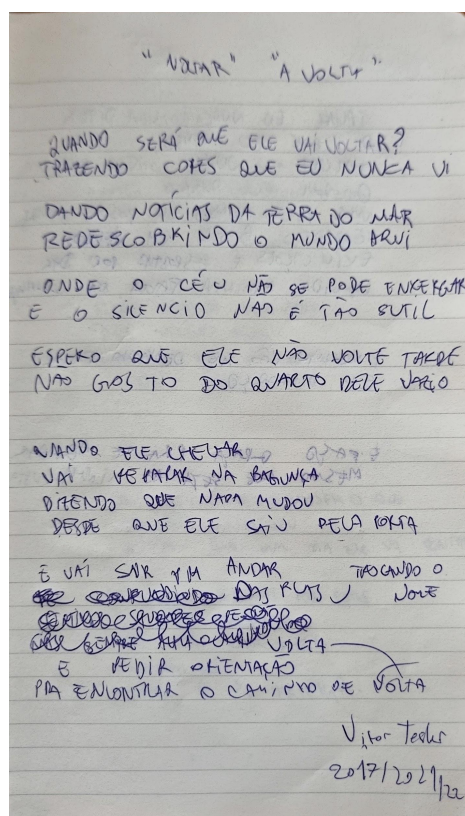 "VOLTAR" "A VOLTA"
QUANDO SERÁ QUE ELE VAI VOLTAR?
TRAZENDO CORES QUE EU NUNCA VI
DANDO NOTÍCIAS DA TERRA DO MAR
REDESCOBRINDO O MUNDO AQUI
ONDE O CÉU NÃO SE PODE ENXERGAR
E O SILENCIO NÃO É TÃO SUTIL
ESPERO QUE ELE NÃO VOLTE TARDE
NÃO GOSTO DO QUARTO DELE VAZIO
QUANDO ELE CHEGAR
VAI REPARAR NA BAGUNÇA
DIZENDO QUE NADA MUDOU
DESDE QUE ELE SAIU PELA PORTA
E VAI SAIR PRA ANDAR TROCANDO O
DAS RUAS NOME
VOLTA
E PEDIR ORIENTAÇÃO
PRA ENCONTRAR O CAMINHO DE VOLTA
Vitor
2017/2021/22